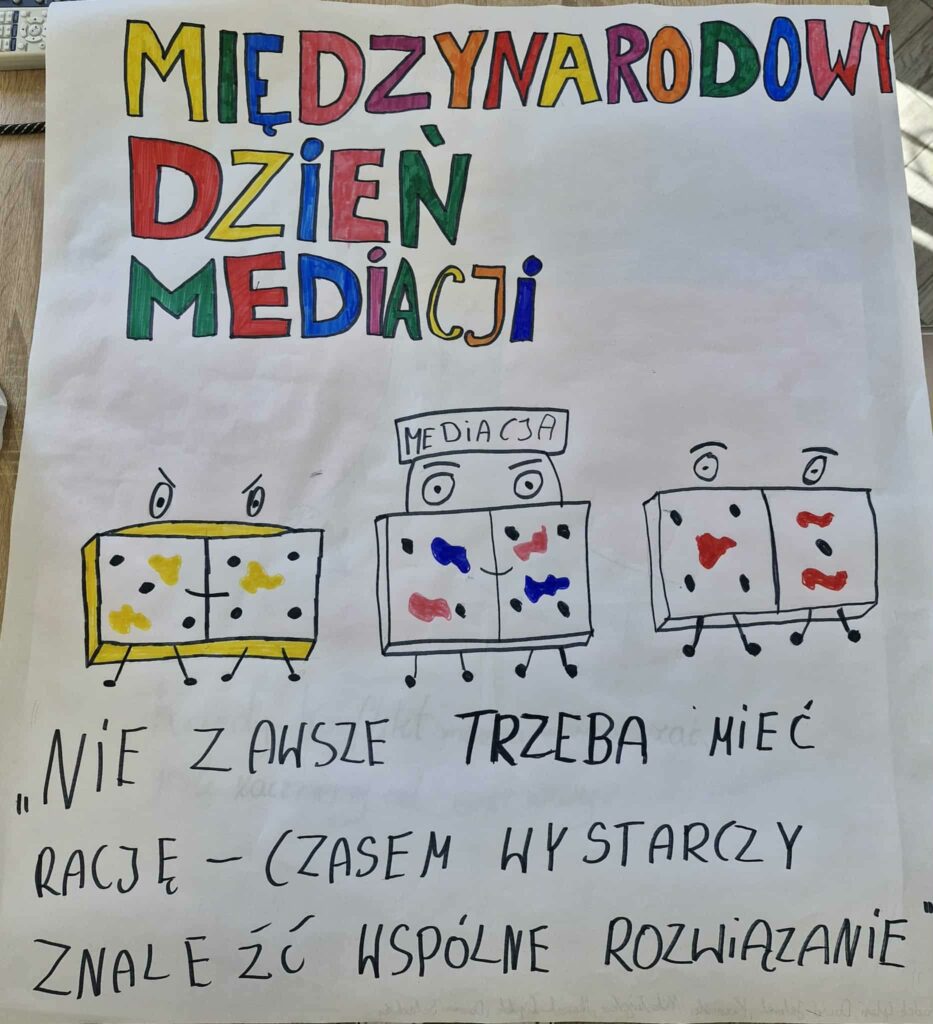 MIĘDZYNARODOWY
DZIEŃ
MEDIACJI
MEDIACJA
„NIE ZAWSZE TRZEBA MIEĆ
RACJĘ – CZASEM WYSTARCZY
ZNALEŹĆ WSPÓLNE ROZWIĄZANIE"